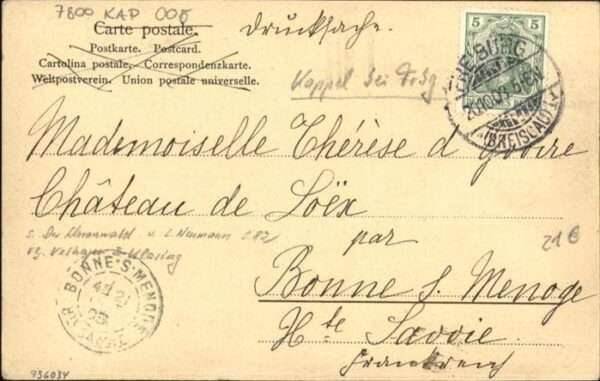 7800 KAP 006
Drucksache.
Carte postale.
Postkarte. Postcard.
Cartolina postale. Correspondenzkarte.
Weltpostverein. Union postale universelle.
5 5
Kappel bei Frbg
FREIBURG
20.10.03
(BREISGAU)
Mademoiselle Thérèse d'Yvoire
Château de Loëx
s. Der Schwarzwald v. L. Neumann S. 82
Vg. Velhagen & Klasing
par
21 €
Bonne s. Menoge
Hte Savoie
Frankreich
BONNE-S-MENOGE
21
03
HTE SAVOIE
936034